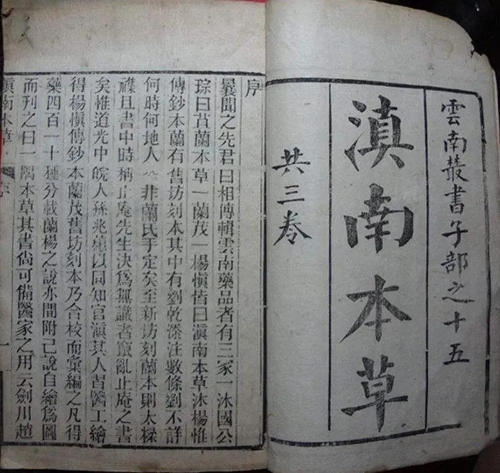 雲南叢書子部之十五
滇南本草
共三卷
序
曩聞之先君曰相傳輯雲南藥品者有三家一沐國公
琮曰苴蘭本草一蘭茂一楊慎皆曰滇南本草沐楊惟
傳鈔本蘭有舊坊刻本其中有劉乾深注數條劉不詳
何時何地人非蘭氏手定矣至新坊刻蘭本則太
襍且書中時止庵先生決為無識者竄亂止庵之書
矣惟道光中皖人孫兆蕙以同知官滇其人習醫工繪
得楊慎傳鈔本蘭茂舊坊刻本乃合校而彙編之凡得
藥四百一十種分載蘭楊之說亦間附己說自繪為圖
而刊之曰一隅本草其書尚可備醫家之用云劍川趙
滇南本草 序 一